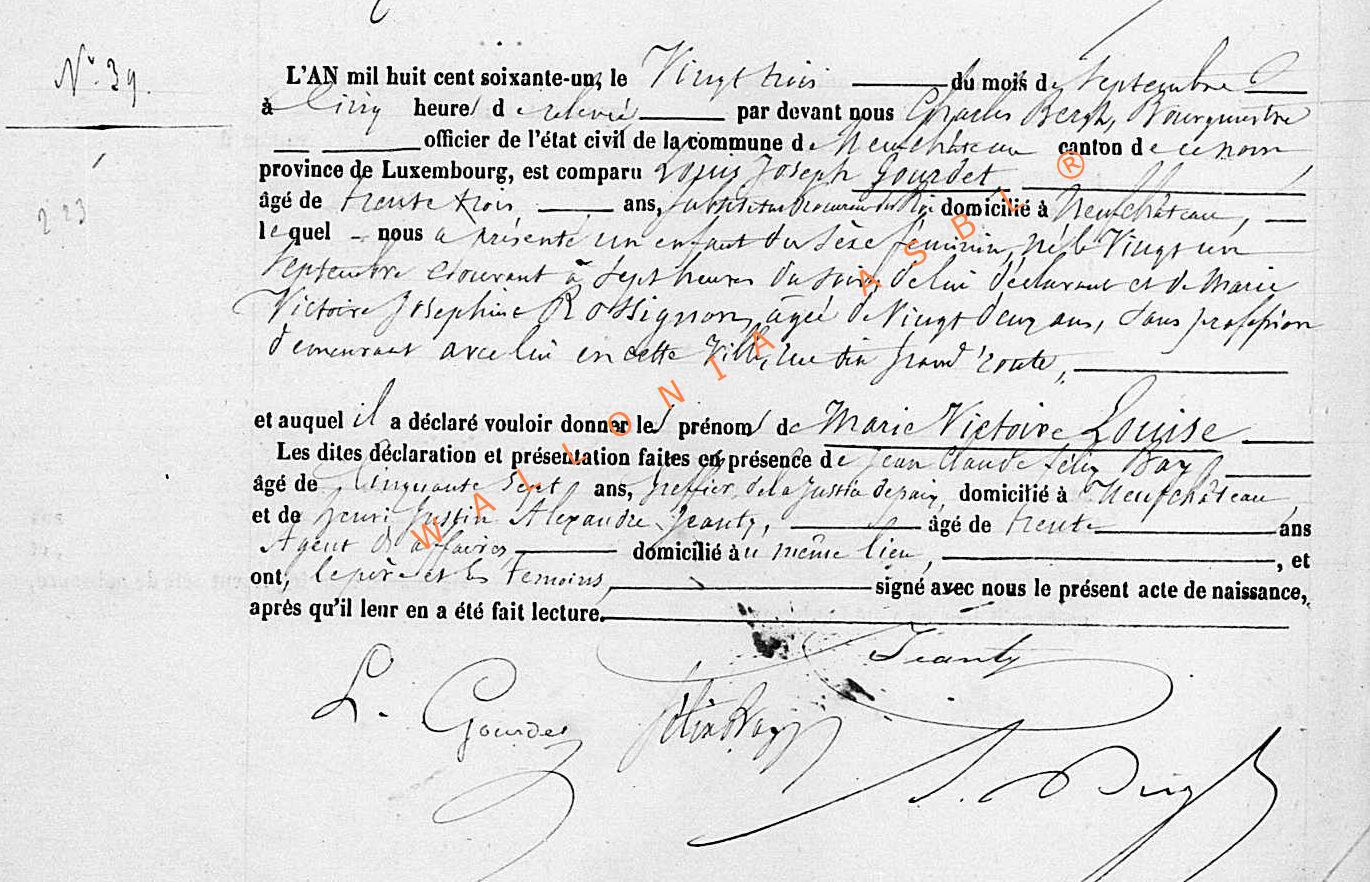 N° 39.
L'AN mil huit cent soixante-un, le Vingt trois du mois de Septembre
à Cinq heures de relevée par devant nous Charles Bergh, Bourgmestre
officier de l'état civil de la commune de Neufchâteau canton de ce nom
province de Luxembourg, est comparu Louis Joseph Gourdet
âgé de trente trois, ans, substitut Procureur du Roi domicilié à Neufchâteau,
lequel nous a présenté un enfant du sexe féminin, né le Vingt un
Septembre courant à sept heures du soir, de lui déclarant et de Marie
Victoire Josephine Rossignon, âgée de Vingt deux ans, sans profession
demeurant avec lui en cette Ville, rue dite grand'route,
et auquel il a déclaré vouloir donner les prénoms de Marie Victoire Louise
Les dites déclaration et présentation faites en présence de Jean Claude Félix
âgé de Cinquante sept ans, Greffier de la Justice de paix, domicilié à Neufchâteau
et de Henri Justin Alexandre Jeanty, âgé de trente ans
Agent d'affaires domicilié au même lieu, , et
ont, le père et les témoins, signé avec nous le présent acte de naissance,
après qu'il leur en a été fait lecture.
Jeanty
L. Gourdet
WALLONIA ASBL ®